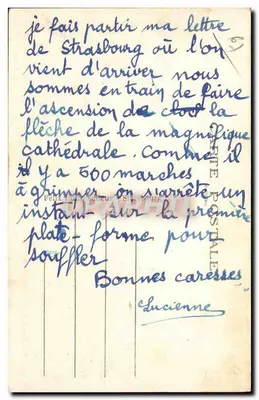 je fais partir ma lettre
de Strasbourg où l'on
vient d'arriver nous
sommes en train de faire
l'ascension de la
flèche de la magnifique
cathédrale. Comme il
il y a 500 marches
à grimper on s'arrête un
instant sur la première
plate-forme pour
souffler
Bonnes caresses
Lucienne
CARTE POSTALE
CPArama